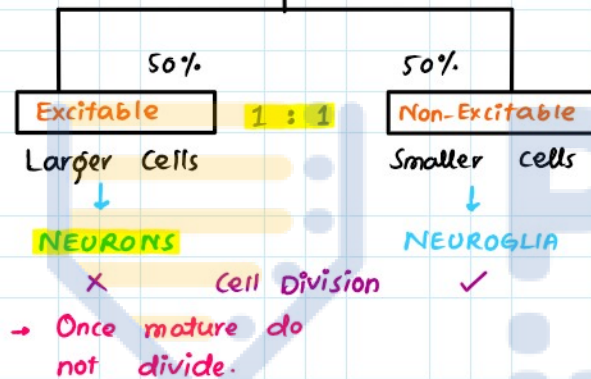 50% 50%
Excitable 1 : 1 Non-Excitable
Larger Cells Smaller cells
NEURONS NEUROGLIA
× Cell Division ✓
→ Once mature do
not divide.